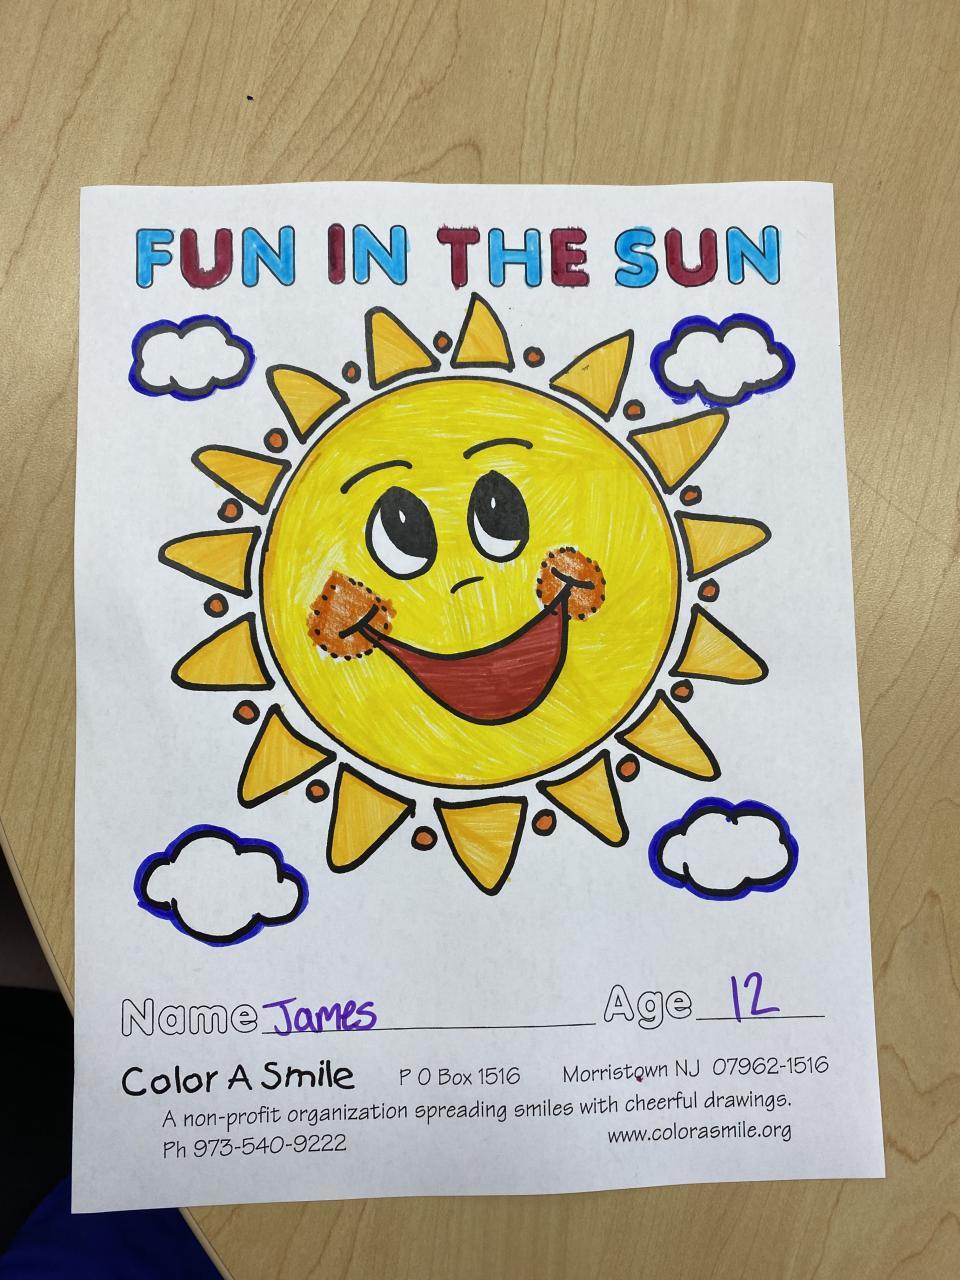 FUN IN THE SUN
Name James Age 12
Color A Smile P O Box 1516 Morristown NJ 07962-1516
A non-profit organization spreading smiles with cheerful drawings.
Ph 973-540-9222 www.colorasmile.org